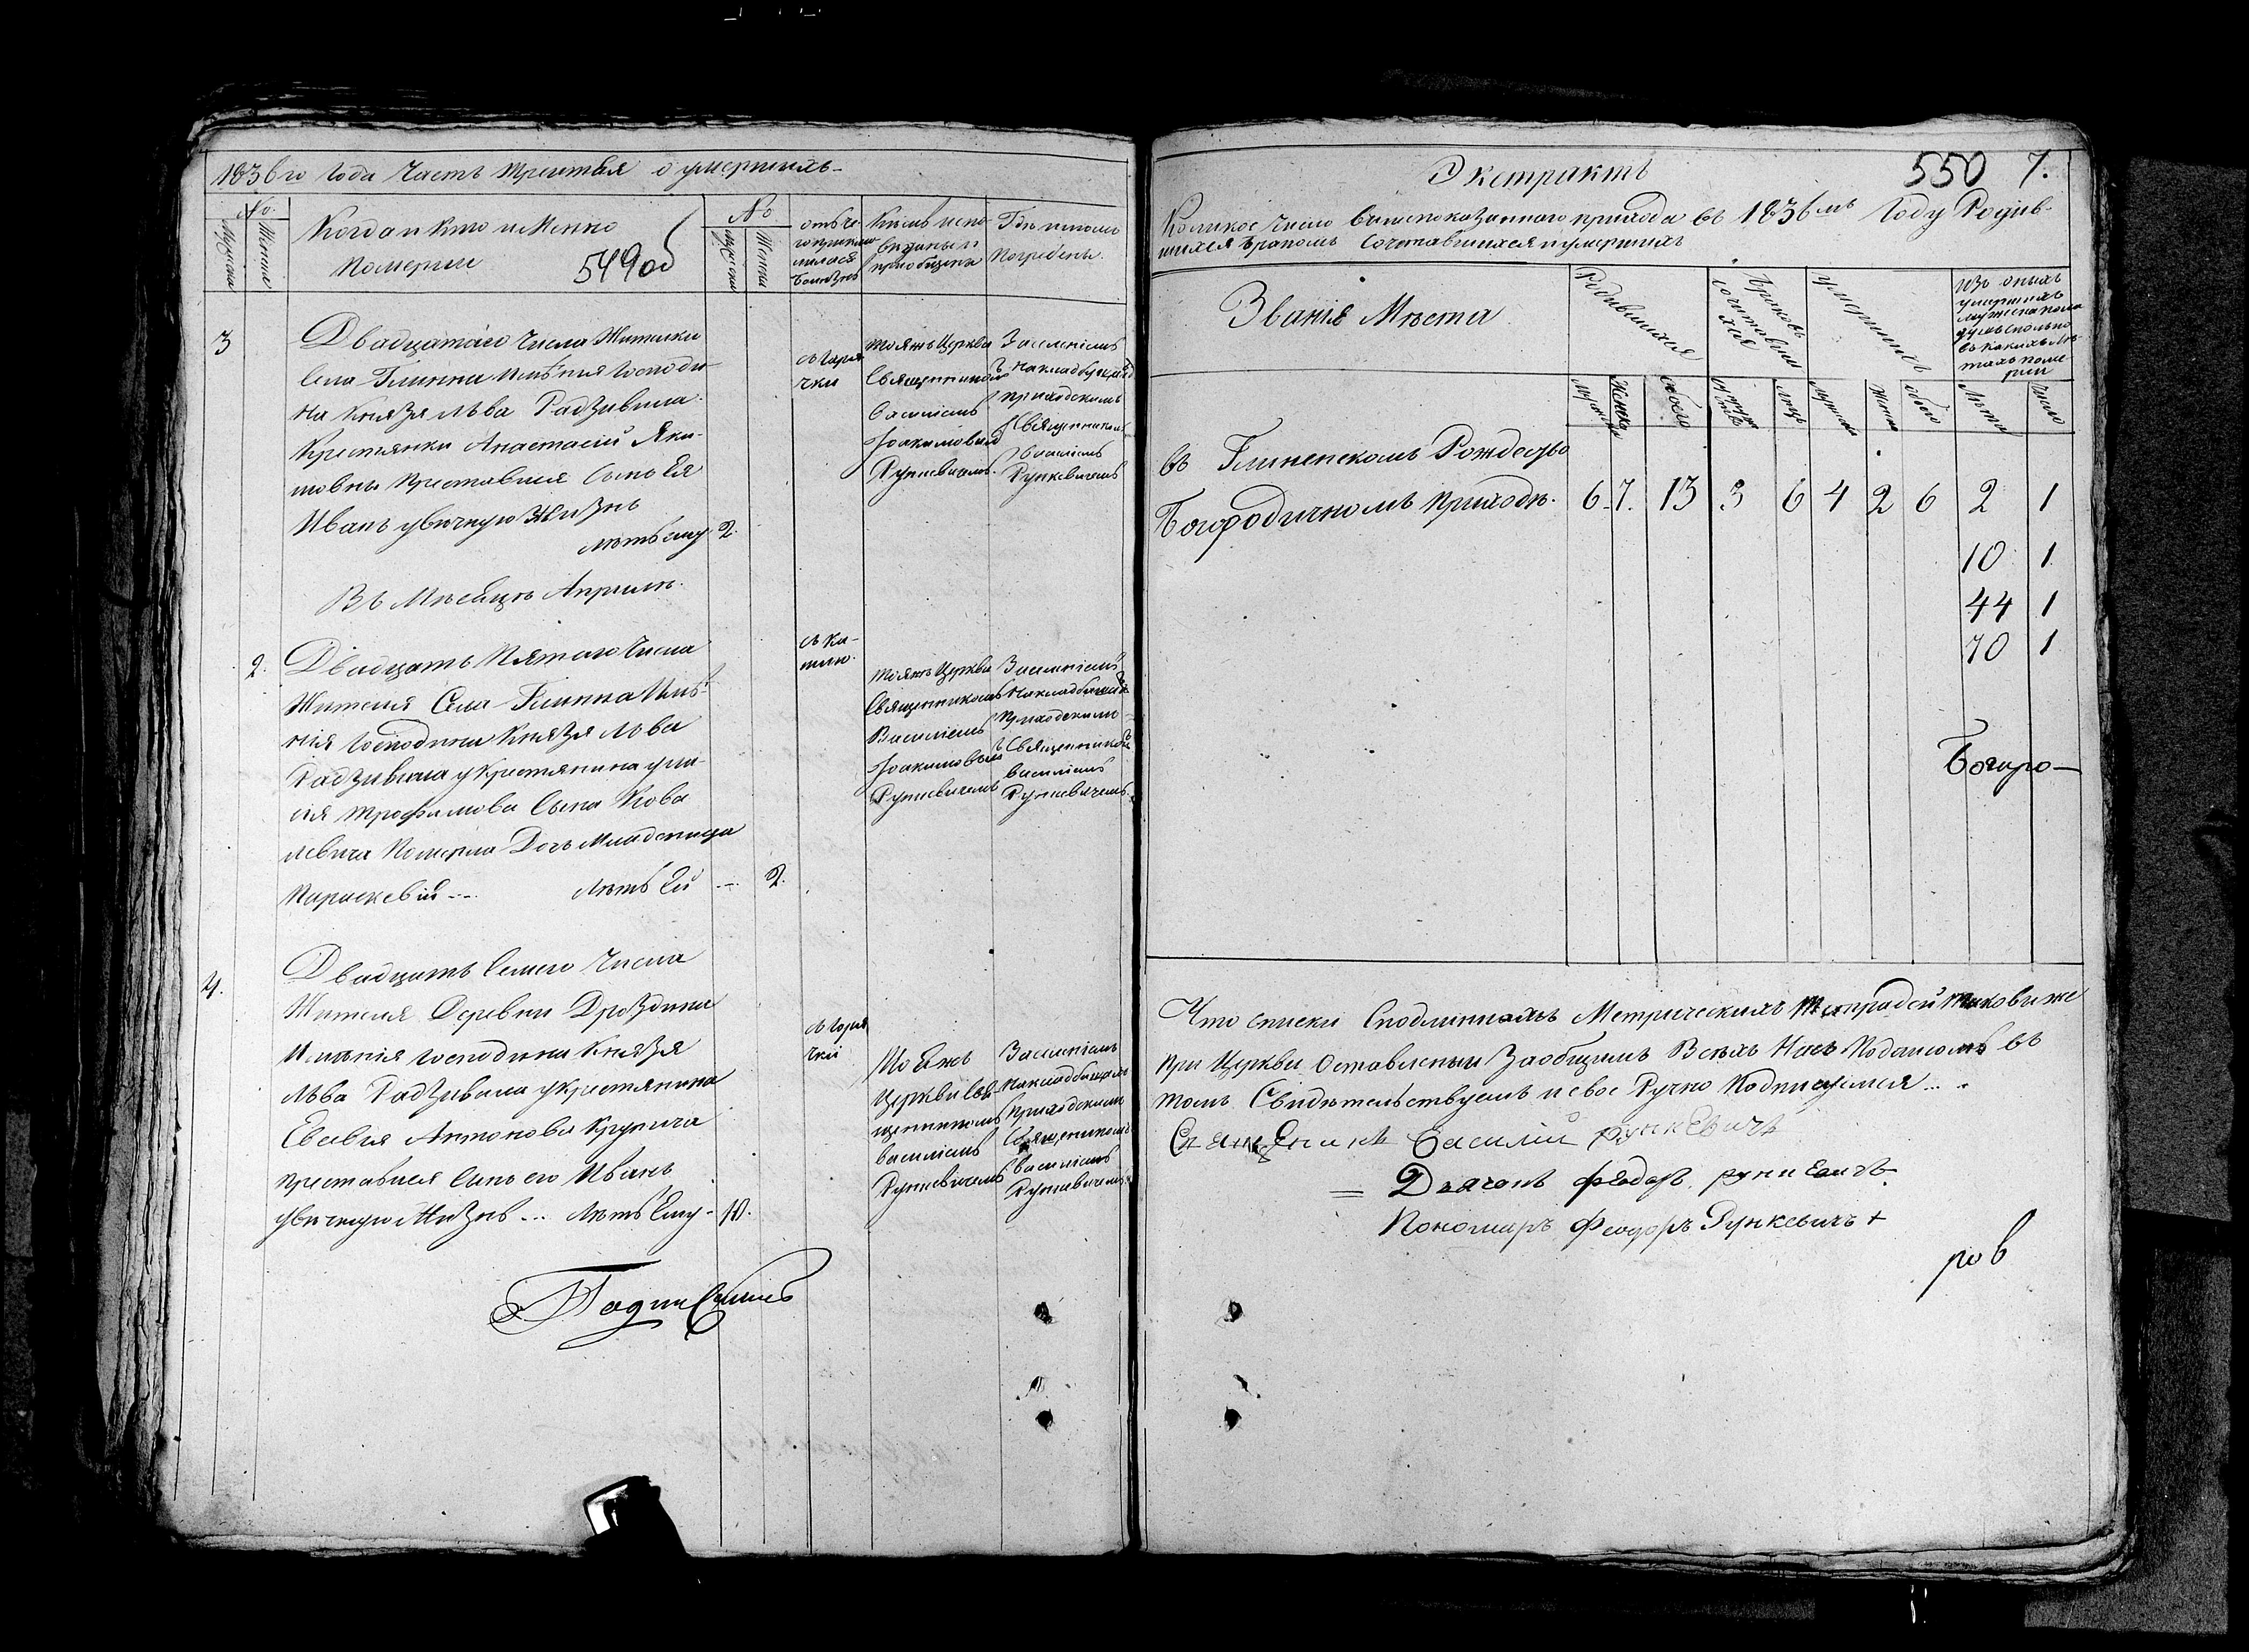 1836го Года Часть Третья о умершихъ
№
Мужеска
Женска
Когда и Кто имянно
Померли
549 об
№
Мужеска
Женска
отъ че-
го приклю-
чилася
болезнь
Кѣмъ испо-
виданы и
приобщены
Гдѣ и кѣмъ
Погребены
3
Двадцатаго Числа Жительки
Села Глинна имѣния Господи-
на Князя Льва Радзивила
Крестянки Анастасіи Яки-
мовны Преставися Сынъ Ея
Иванъ у вѣчную Жизнь
Лѣтъ ему 2.
съ Горя-
чки
тоя жъ Церкви
Священникомъ
Василіемъ
Іоакимовымъ
Рункевичемъ
За селеніемъ
на кладбищѣ
приходскимъ
Священникомъ
Василіемъ
Рункевичемъ
Въ Мѣсяцѣ Априлѣ.
2.
Двадцать Пятого Числа
Жителя Села Глинна Имѣ-
нія Господина Князя Льва
Радзивила у Крестянина
Трофимова Сына Кова
левича Померла Дочь Младеница
Параскевія --- Лѣтъ Ей -- 2.
съ Ка-
шлю.
тоя жъ Церкви
Священникомъ
Василіемъ
Іоакимовымъ
Рункевичемъ
За селеніемъ
на кладбищѣ
Приходскимъ
Священникомъ
Василіемъ
Рункевичемъ
4.
Двадцать Семого Числа
Жителя Деревни Дроздина
Имѣнія Господина Князя
Льва Радзивила у Крестянина
Евсевия Антонова Крупича
преставися Сынъ его Иванъ
у вѣчную Жизнь... Лѣтъ Ему - 10.
съ Горя
чки
Тоя жъ
Церкви Свя-
щенникомъ
Василіемъ
Рункевичемъ
За селеніемъ
на кладбищѣ
Приходскимъ
Священникомъ
Василіемъ
Рункевичемъ
550 7.
Экстрактъ
Коликое Число вышепоказанного прихода въ 1836мъ Году Родив-
шихся Бракомъ Сочетавшихся и умершихъ
Званіе Мѣста
Родившихся
Браковъ
сочетавши
хся
умершихъ
изъ оныхъ
умершихъ
мужеска пола
душъ сколько
въ какихъ лѣ-
тахъ поме-
рли
Мужеска
Женска
обоего
Лицъ
Мужеска
Женска
обоего
Лѣта
Число
въ Глиненскомъ Рождество
Богородичномъ Приходѣ. 6. 7. 13 3 6 4 2 6 2 1
10 1
44 1
70 1
Богоро-
Что списки Сподлинныхъ Метрическихъ Тетрадей таковы же
при Церкви Оставлены За общимъ Всѣхъ Насъ Подписомъ въ
томъ Свидѣтельствуемъ и свое Ручно Подписуемся...
Священникъ Василий Рункевичъ
= Дьячокъ Федоръ Рункевичъ
Пономарь Феодоръ Рункевичъ +
ров